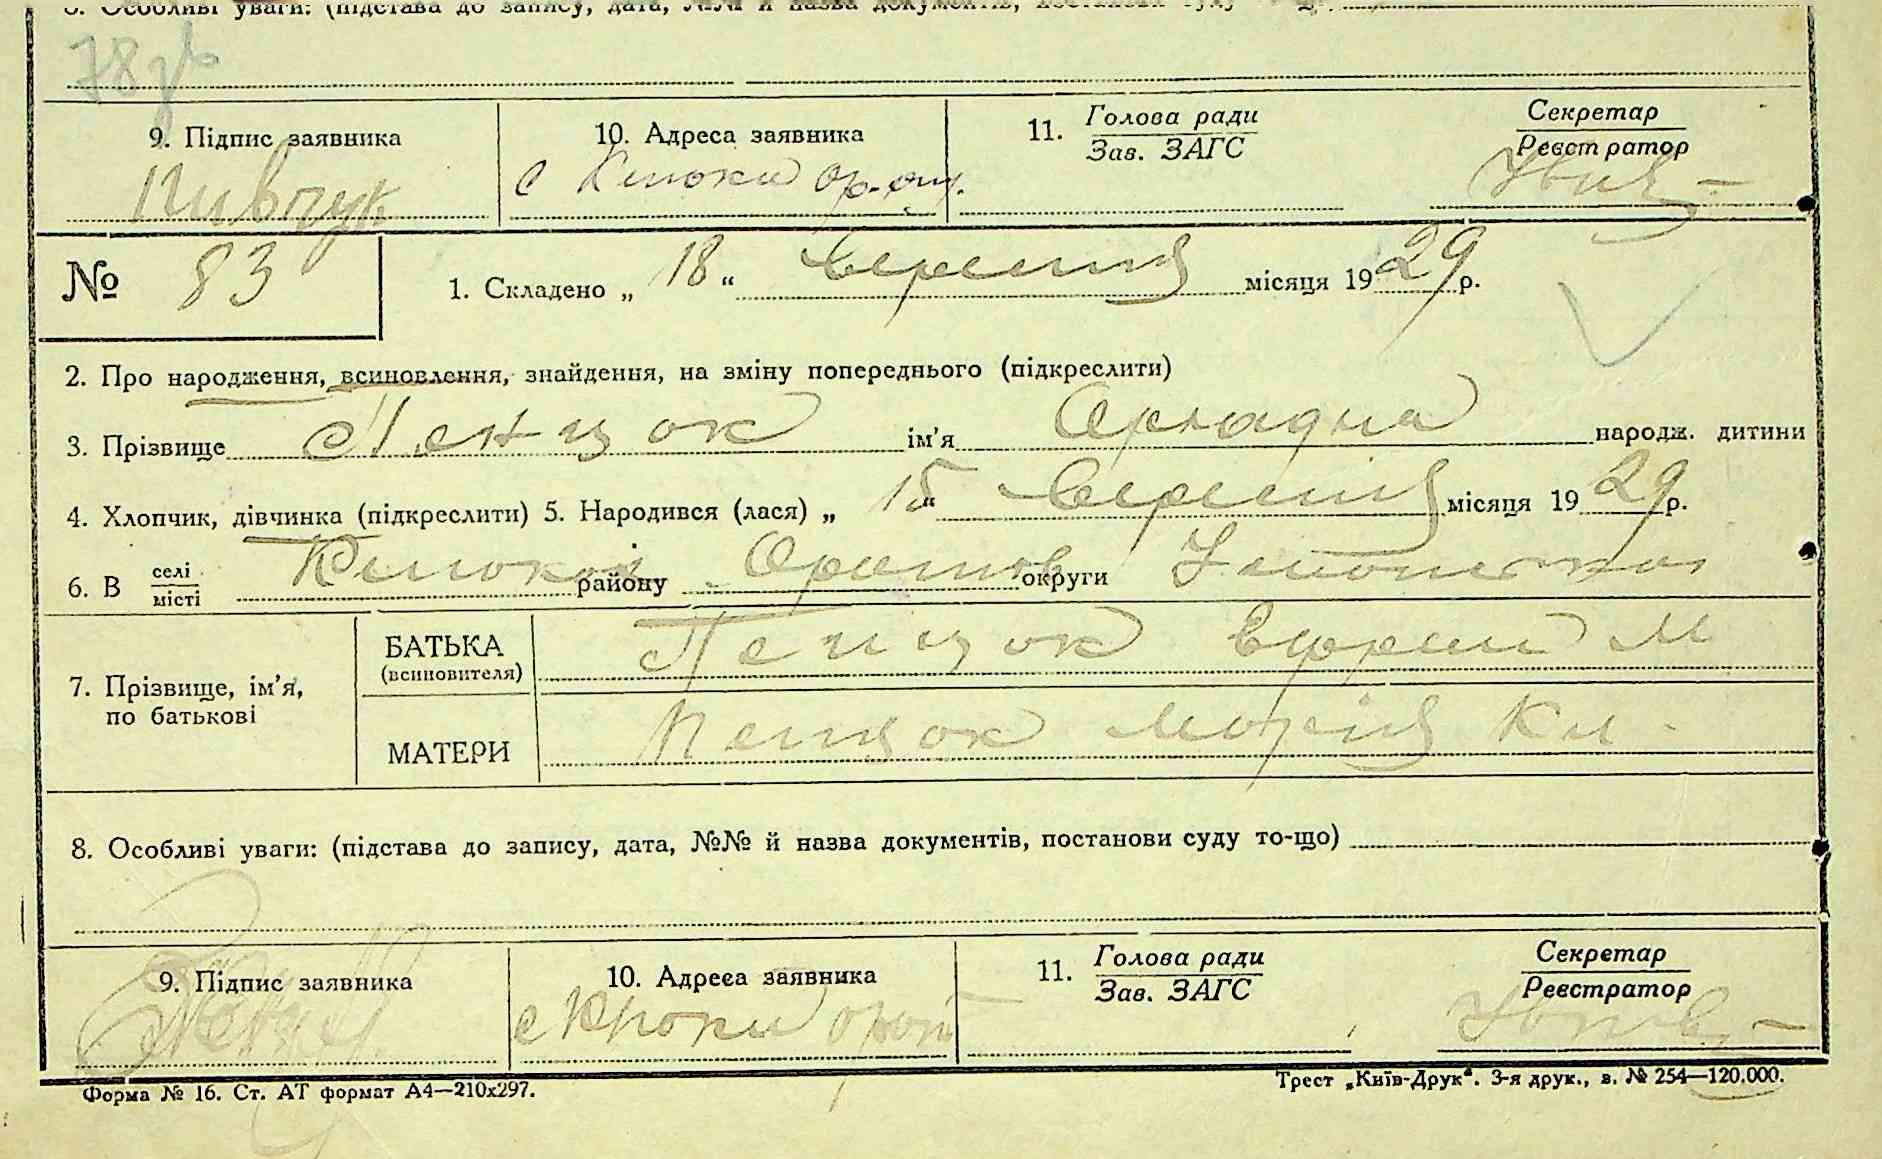 8. Особливі уваги: (підстава до запису, дата, №№ й назва документів, постанови суду то-що)
78
9. Підпис заявника 10. Адреса заявника 11. Голова ради Секретар
Зав. ЗАГС Реєстратор
с
№ 83 1. Складено „ 18 “ вересня місяця 1929 р.
2. Про народження, всиновлення, знайдення, на зміну попереднього (підкреслити)
3. Прізвище Пенцок ім’я Аріадна народж. дитини
4. Хлопчик, дівчинка (підкреслити) 5. Народився (лася) „ 15 “ вересня місяця 1929 р.
6. В селі району Оратов округи
місті
7. Прізвище, ім’я, по батькові
БАТЬКА Пенцок Ефрем М
(всиновителя)
МАТЕРИ Пенцок Марія Кл.
8. Особливі уваги: (підстава до запису, дата, №№ й назва документів, постанови суду то-що)
9. Підпис заявника 10. Адреса заявника 11. Голова ради Секретар
Зав. ЗАГС Реєстратор
с Орат
Форма № 16. Ст. АТ формат А4—210х297. Трест „Київ-Друк“. 3-я друк., в. № 254—120.000.